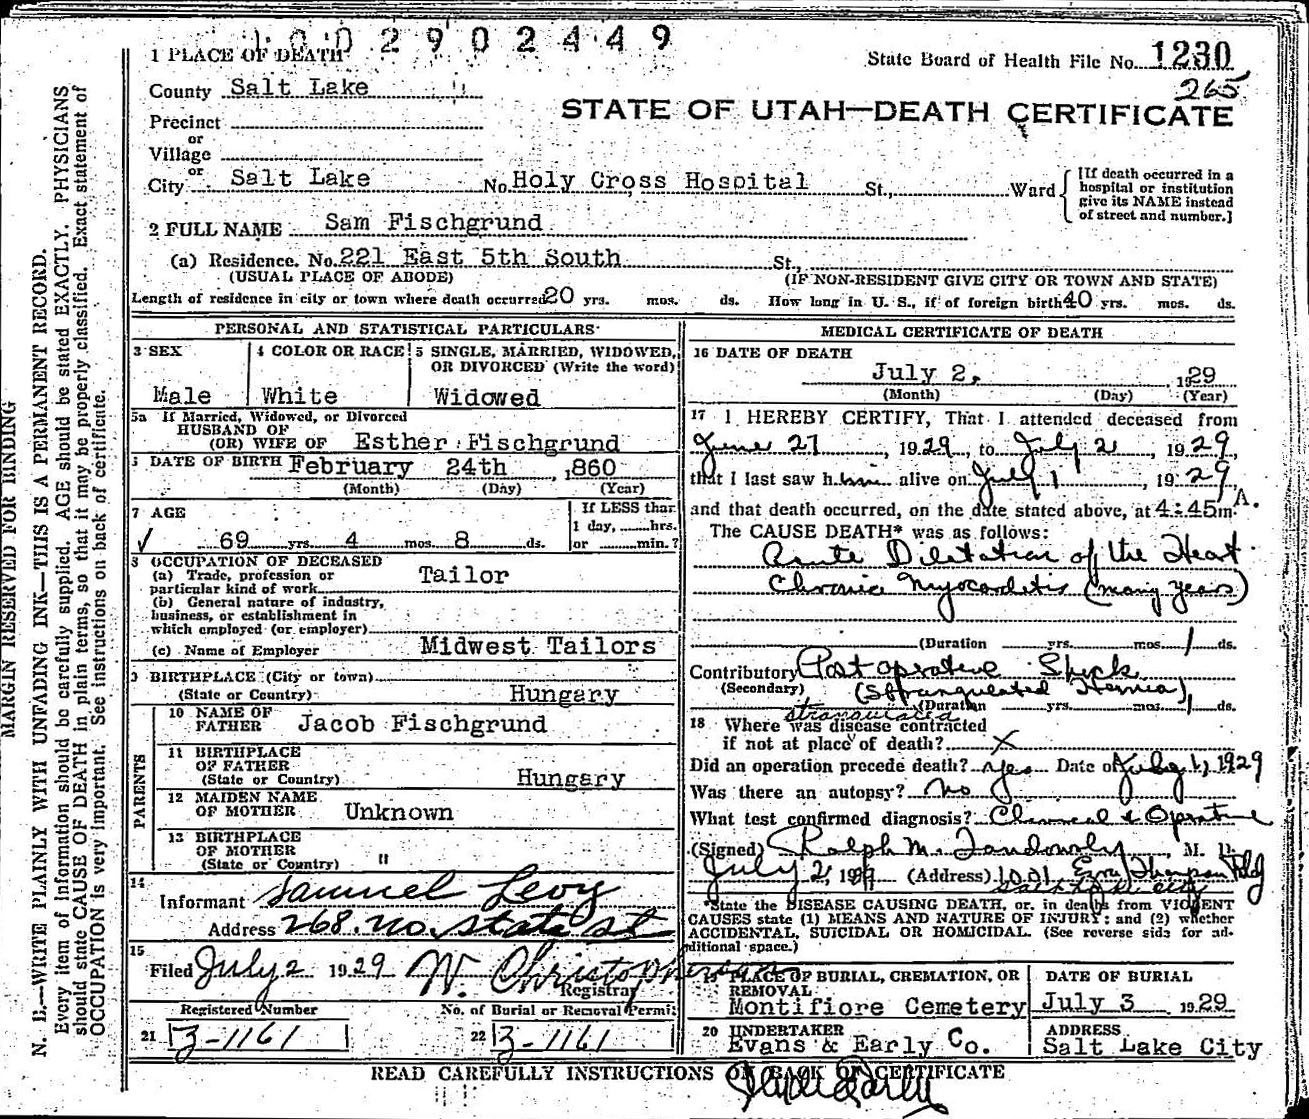 1002902449
1 PLACE OF DEATH
State Board of Health File No. 1230
265
County Salt Lake
STATE OF UTAH—DEATH CERTIFICATE
Precinct
or
Village
or
City Salt Lake No. Holy Cross Hospital St., Ward
[If death occurred in a
hospital or institution
give its NAME instead
of street and number.]
2 FULL NAME Sam Fischgrund
(a) Residence. No. 221 East 5th South St.,
(USUAL PLACE OF ABODE) (IF NON-RESIDENT GIVE CITY OR TOWN AND STATE)
Length of residence in city or town where death occurred 20 yrs. mos. ds. How long in U. S., if of foreign birth 40 yrs. mos. ds.
PERSONAL AND STATISTICAL PARTICULARS
3 SEX
Male
4 COLOR OR RACE
White
5 SINGLE, MARRIED, WIDOWED,
OR DIVORCED (Write the word)
Widowed
5a If Married, Widowed, or Divorced
HUSBAND OF
(OR) WIFE OF Esther Fischgrund
DATE OF BIRTH February 24th ,1860
(Month) (Day) (Year)
7 AGE
69 yrs. 4 mos. 8 ds.
If LESS than
1 day, hrs.
or min.?
8 OCCUPATION OF DECEASED
(a) Trade, profession or
particular kind of work Tailor
(b) General nature of industry,
business, or establishment in
which employed (or employer)
(c) Name of Employer Midwest Tailors
9 BIRTHPLACE (City or town)
(State or Country) Hungary
PARENTS
10 NAME OF
FATHER Jacob Fischgrund
11 BIRTHPLACE
OF FATHER
(State or Country) Hungary
12 MAIDEN NAME
OF MOTHER Unknown
13 BIRTHPLACE
OF MOTHER
(State or Country) "
14
Informant Samuel Levy
Address 268 no. state st
15
Filed July 2 1929 W. Christopherson
Registrar
Registered Number
21 3-1161
No. of Burial or Removal Permit
22 3-1161
MEDICAL CERTIFICATE OF DEATH
16 DATE OF DEATH
July 2, 1929
(Month) (Day) (Year)
17 I HEREBY CERTIFY, That I attended deceased from
June 27, 1929, to July 2, 1929,
that I last saw him alive on July 1, 1929,
and that death occurred, on the date stated above, at 4:45 A.m.
The CAUSE DEATH* was as follows:
Acute Dilatation of the Heart
Chronic Myocarditis (many years)
(Duration yrs. mos. 1 ds.
Contributory Post operative Shock
(Secondary) (Strangulated Hernia)
(Duration yrs. mos. 1 ds.
strangulated
18 Where was disease contracted
if not at place of death? X
Did an operation precede death? yes Date of July 1, 1929
Was there an autopsy? No
What test confirmed diagnosis? Clinical & Operative
(Signed) Ralph M. M. D.
July 2, 1929 (Address) 1021 Ezra Thompson Bldg
Salt Lake City
*State the DISEASE CAUSING DEATH, or, in deaths from VIOLENT
CAUSES state (1) MEANS AND NATURE OF INJURY; and (2) whether
ACCIDENTAL, SUICIDAL OR HOMICIDAL. (See reverse side for ad-
ditional space.)
19 PLACE OF BURIAL, CREMATION, OR
REMOVAL
Montifiore Cemetery
DATE OF BURIAL
July 3 1929
20 UNDERTAKER
Evans & Early Co.
ADDRESS
Salt Lake City
READ CAREFULLY INSTRUCTIONS ON BACK OF CERTIFICATE
MARGIN RESERVED FOR BINDING
N. B.—WRITE PLAINLY WITH UNFADING INK—THIS IS A PERMANENT RECORD.
Every item of information should be carefully supplied. AGE should be stated EXACTLY. PHYSICIANS
should state CAUSE OF DEATH in plain terms, so that it may be properly classified. Exact statement of
OCCUPATION is very important. See instructions on back of certificate.